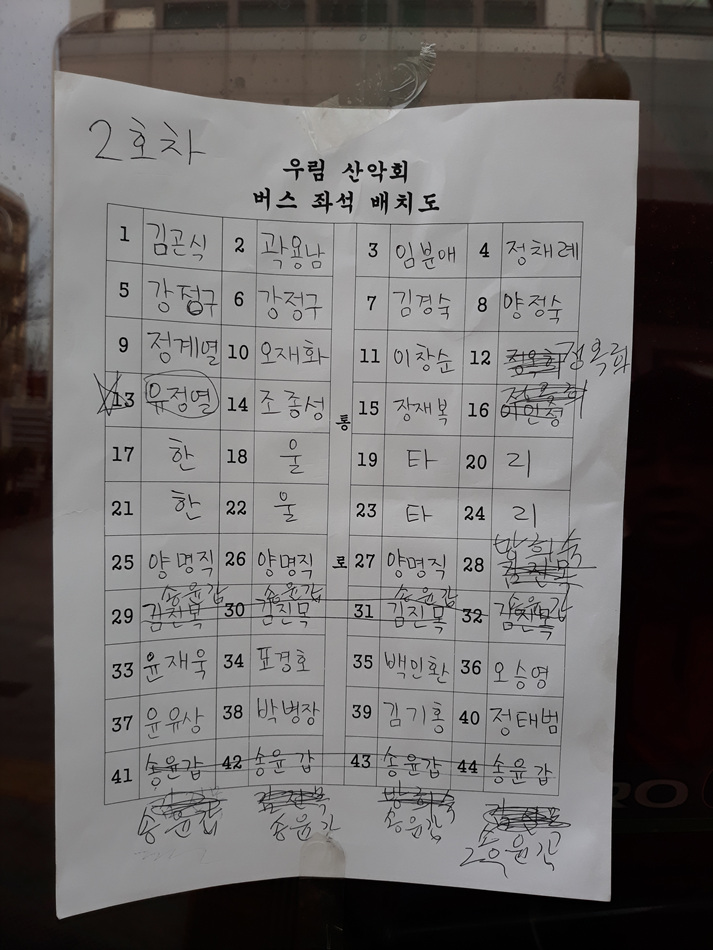 2호차
우림 산악회
버스 좌석 배치도
1 김곤식 2 곽용남 3 임분애 4 정채례
5 강정구 6 강정구 7 김경숙 8 양정숙
9 정계열 10 오재화 11 이창순 12 정옥희 정옥화
13 유정열 14 조종성 통 15 장재복 16 이인정
17 한 18 울 19 타 20 리
21 한 22 울 23 타 24 리
방희숙
25 양명직 26 양명직 로 27 양명직 28 김진목
송윤갑 송윤갑 송윤갑 송윤갑
29 김진목 30 김진목 31 김진목 32 김진목
33 윤재욱 34 표경호 35 백인환 36 오승영
37 윤유상 38 박병장 39 김기홍 40 정태범
41 송윤갑 42 송윤갑 43 송윤갑 44 송윤갑
송윤갑 송윤갑 송윤갑 송윤갑
RO